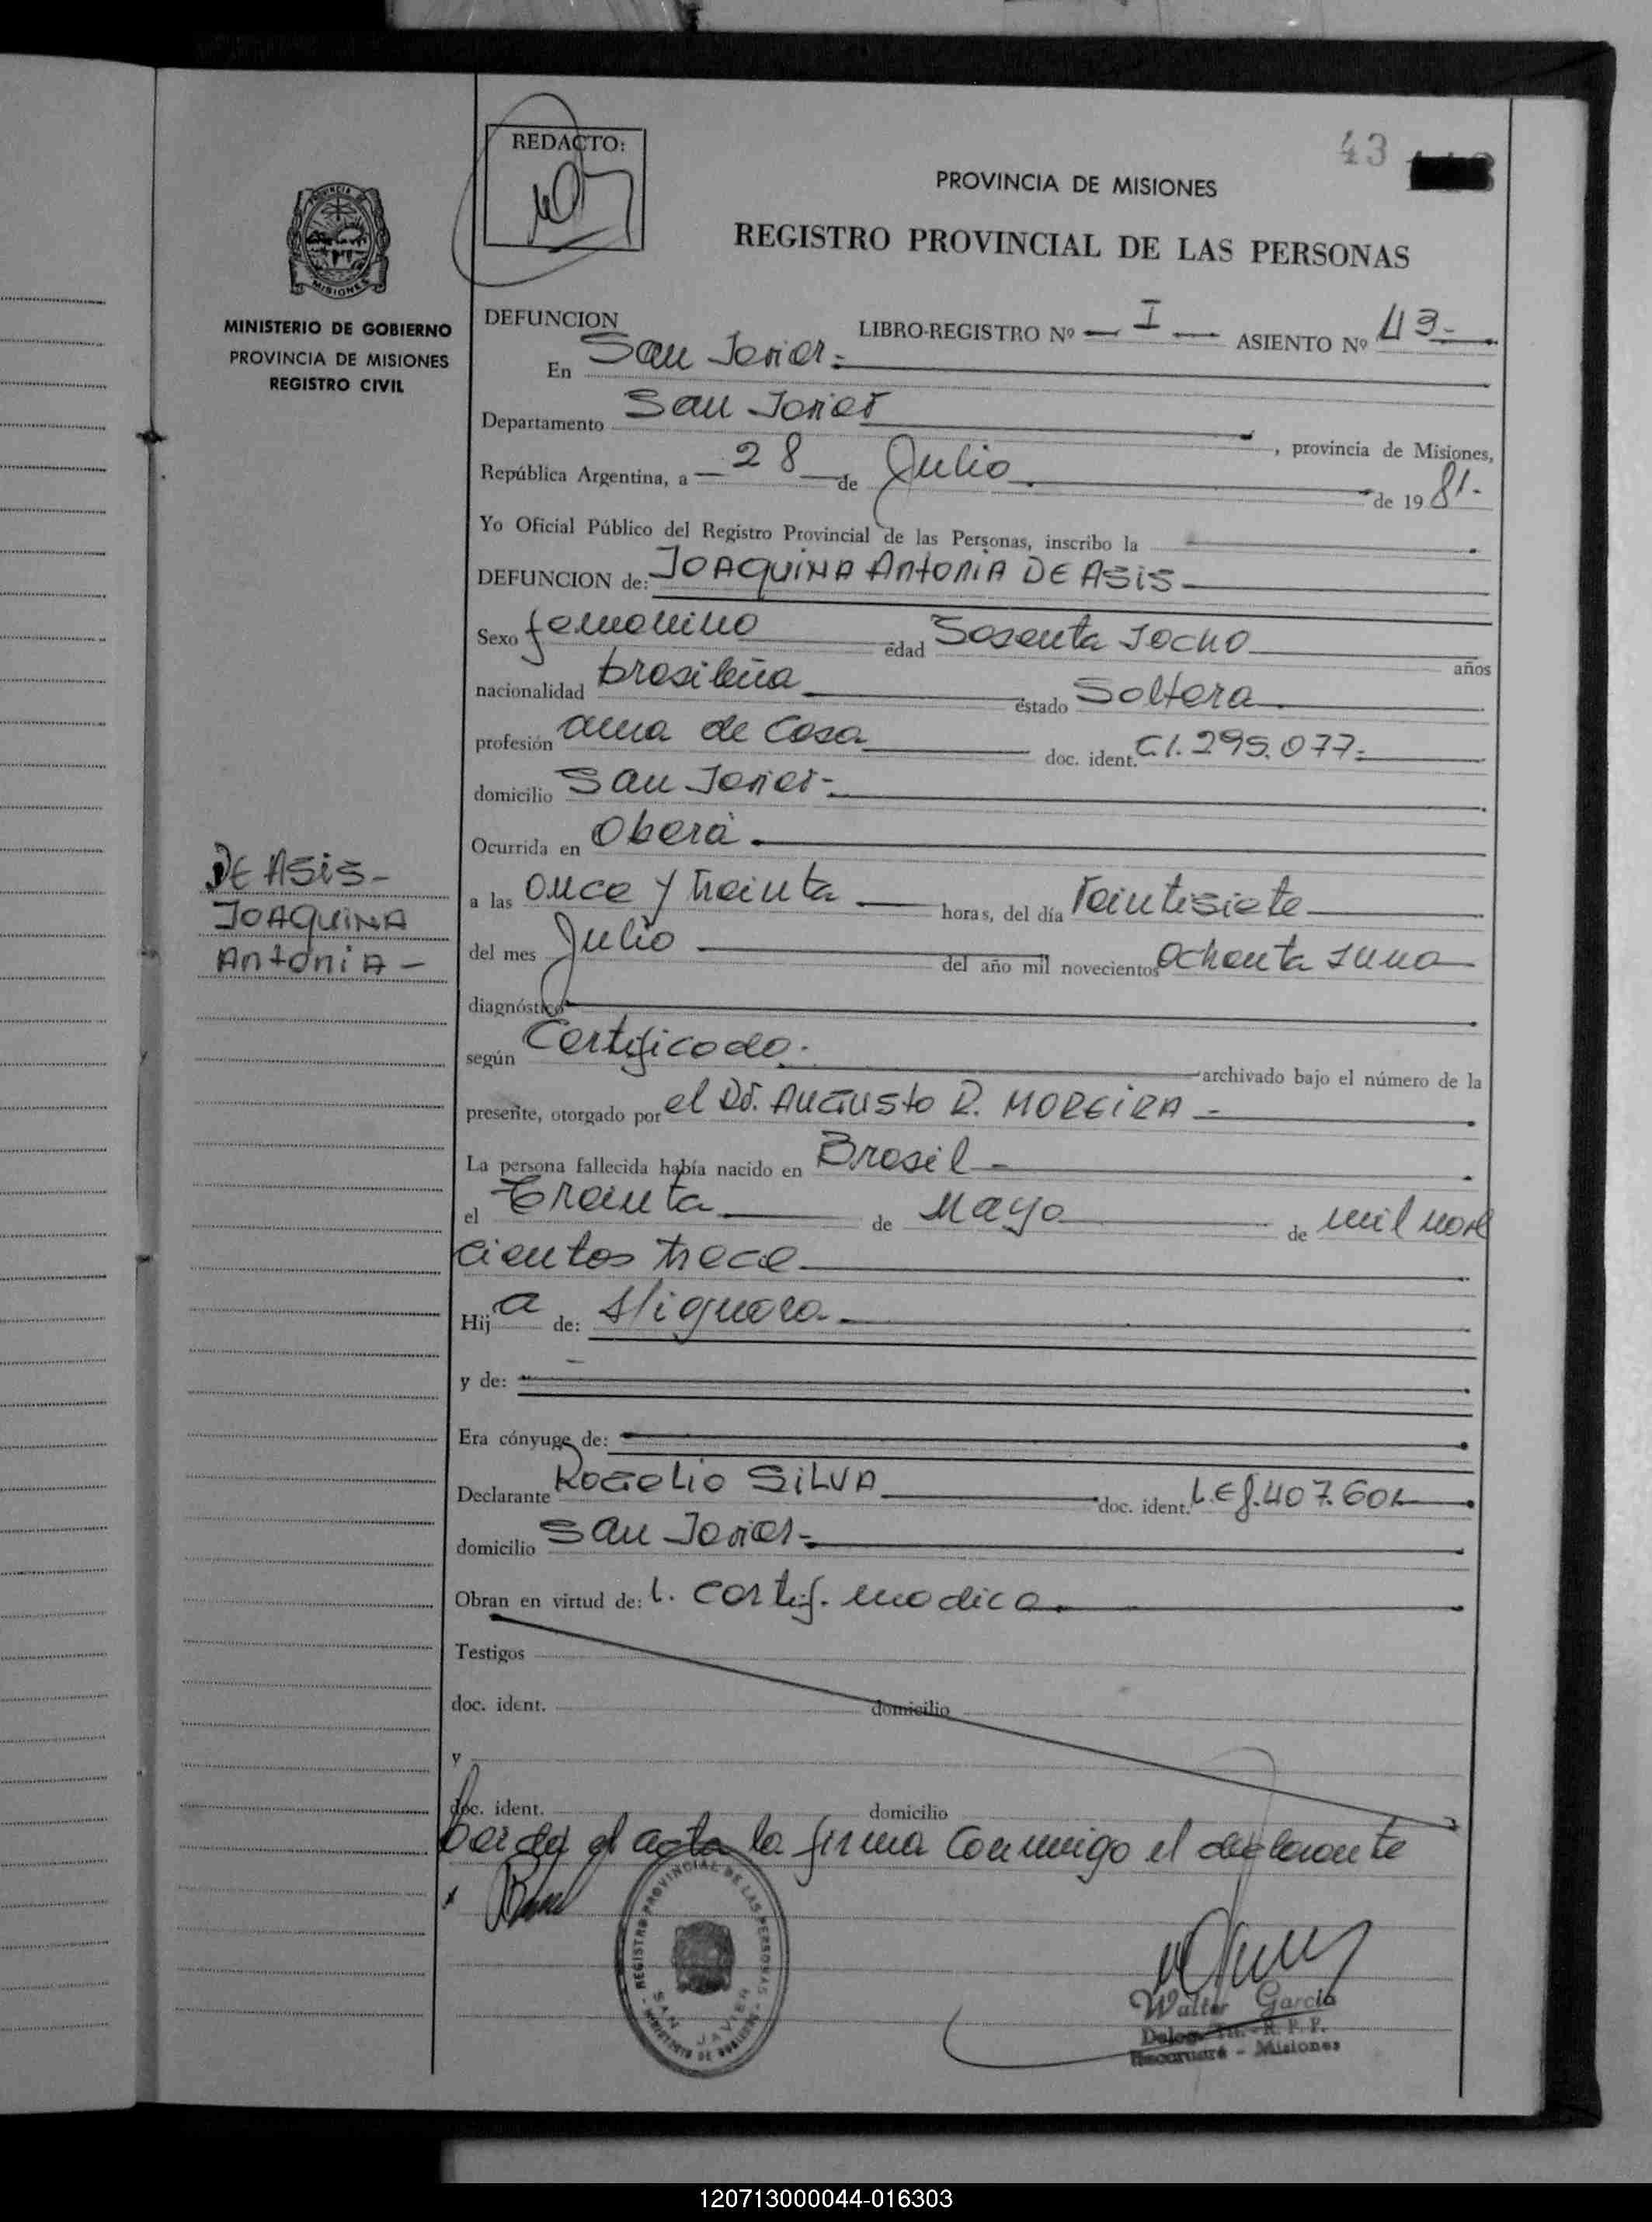 REDACTO:
43
PROVINCIA DE MISIONES
REGISTRO PROVINCIAL DE LAS PERSONAS
PROVINCIA
MISIONES
MINISTERIO DE GOBIERNO
PROVINCIA DE MISIONES
REGISTRO CIVIL
DEFUNCION LIBRO-REGISTRO Nº — I — ASIENTO Nº 43.-
En San Javier.-
Departamento San Javier , provincia de Misiones,
República Argentina, a 28 de Julio de 1981.-
Yo Oficial Público del Registro Provincial de las Personas, inscribo la
DEFUNCION de: JOAQUINA AntoniA DE ASiS
Sexo femenino edad Sesenta y ocho años
nacionalidad brasileña estado Soltera
profesión ama de casa doc. ident. C.I. 295.077.-
domicilio San Javier.-
Ocurrida en Oberá.
a las once y treinta horas, del día Veintisiete
del mes Julio del año mil novecientos ochenta y uno
diagnóstico
según Certificado. archivado bajo el número de la
presente, otorgado por el Dr. AUGUSto R. MOREiRA -
La persona fallecida había nacido en Brasil -
el treinta de Mayo de mil nove
cientos trece
DE ASiS-
JOAQUINA
AntôniA -
Hija de: se ignora.
y de:
Era cónyuge de:
Declarante ROGELIO SILVA doc. ident.
domicilio San Javier.-
Obran en virtud de: l. certif. medico.
Testigos
doc. ident. domicilio
y
doc. ident. domicilio
el acta la firma conmigo el declarante
REGISTRO PROVINCIAL DE LAS PERSONAS
SAN JAVIER
MINISTERIO DE GOBIERNO
Walter Garcia
R. P. P.
Misiones
120713000044-016303